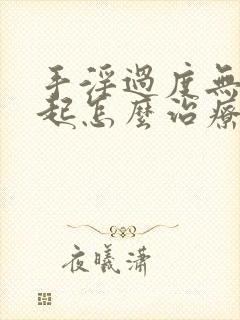 手淫過度無
起怎麼治療
夜曦瀟